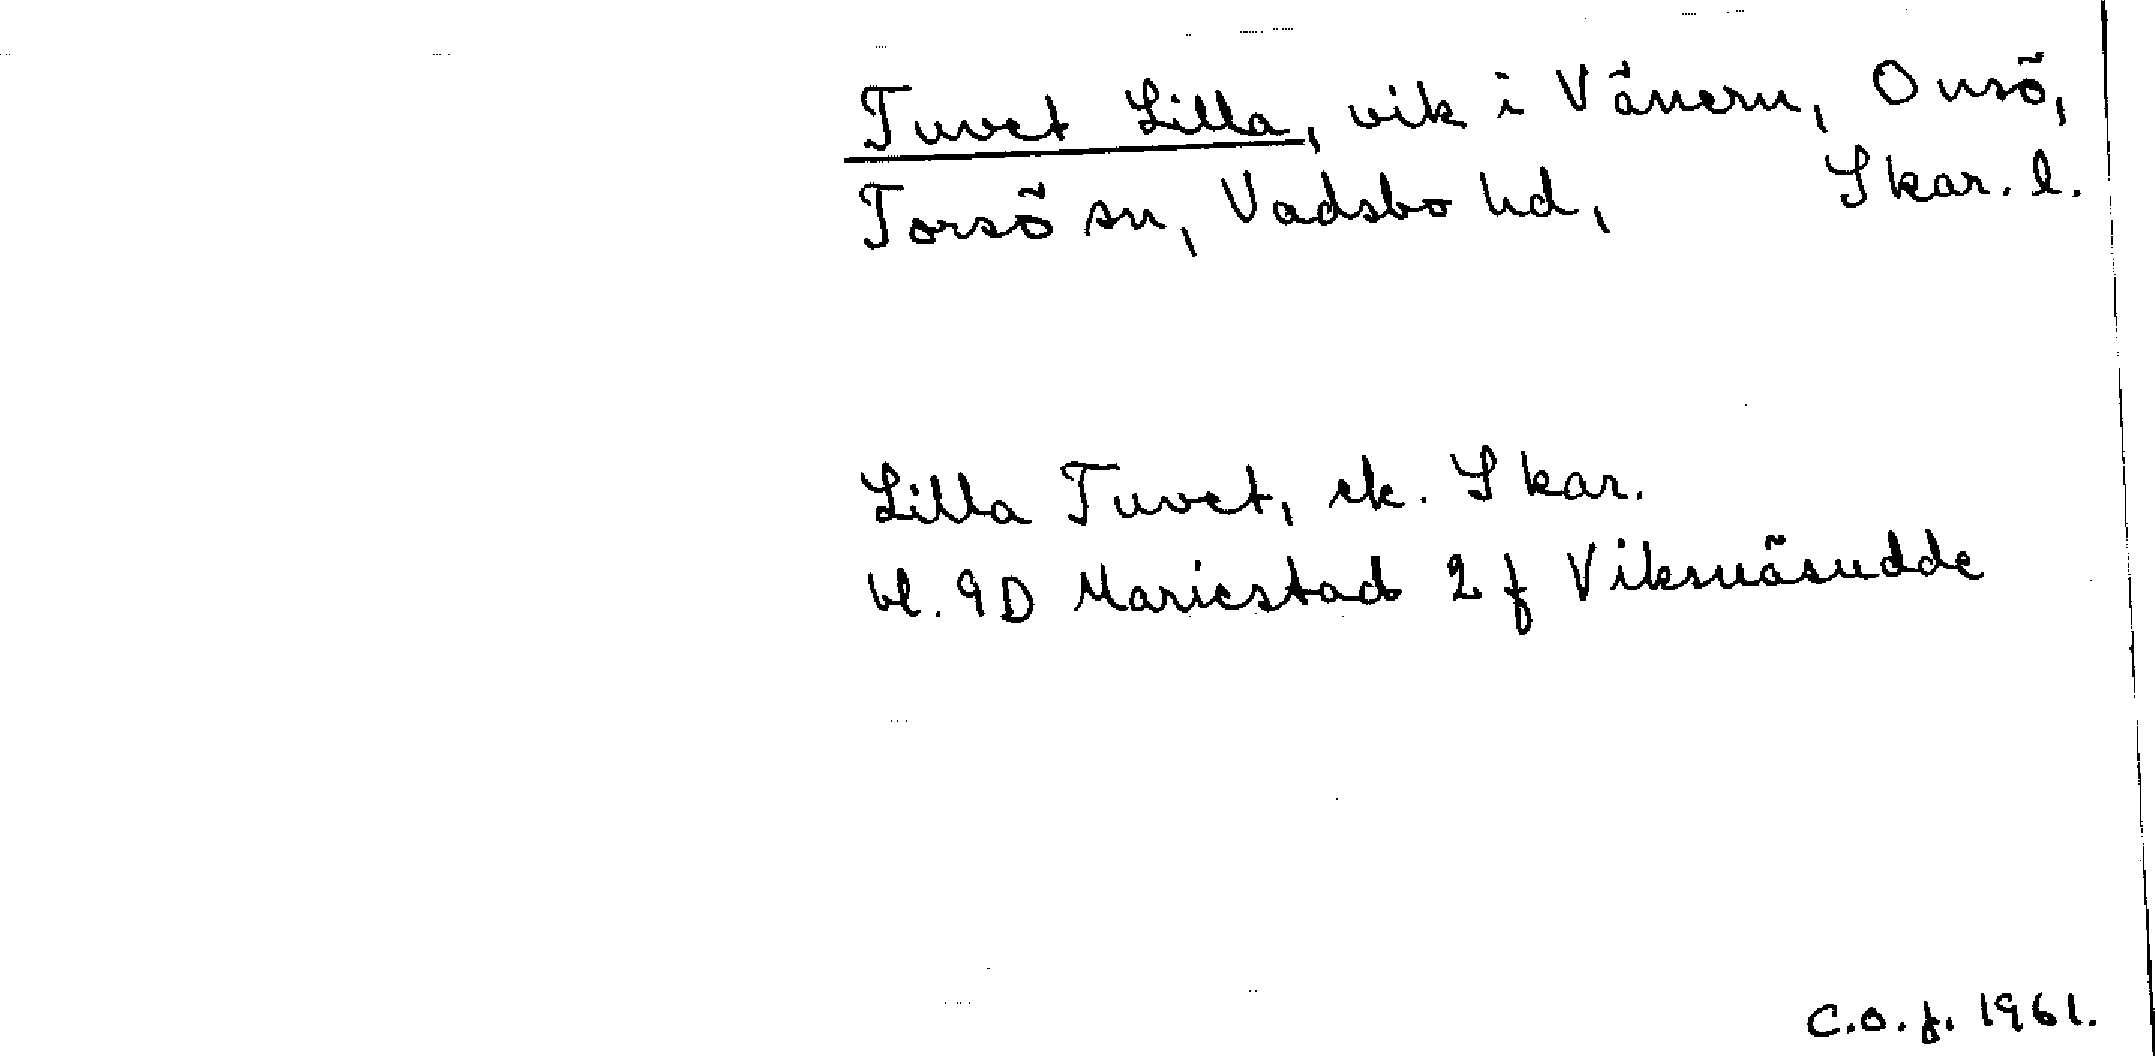 Tuvet Lilla, vik i Vänern, Onsö,
Torsö sn, Vadsbo hd, Skar. l.
Lilla Tuvet, ek. Skar.
bl. 9D Mariestad 2 f Viksnäsudde
C.O.f. 1961.